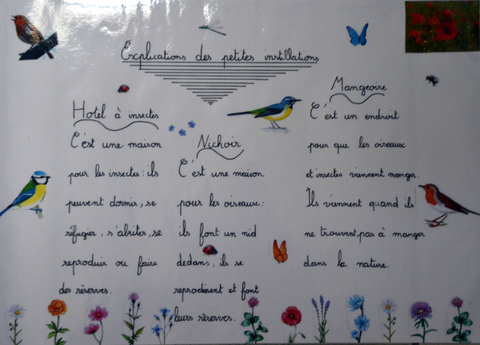 Explications des petites instllations
Hotel à insectes
C'est une maison
pour les insectes : ils
peuvent dormir, se
réfugier, s'abriter, se
reproduir ou faire
des réserves.
Nichoir
C'est une maison
pour les oiseaux :
ils font un nid
dedans, ils se
reproduisent et font
leurs réserves.
Mangeoire
C'est un endroit
pour que les oiseaux
et insectes viennent manger.
Ils viennent quand ils
ne trouvent pas à manger
dans la nature.